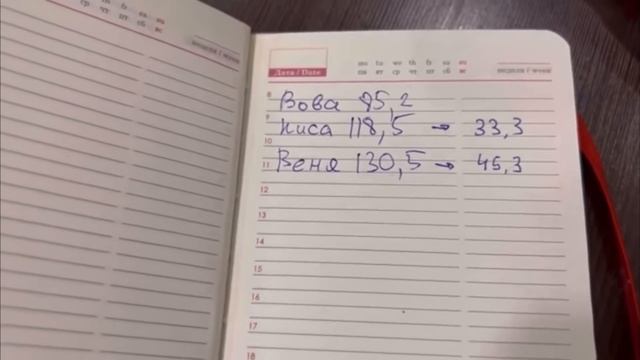 fr sa su
ср чт пт сб вс
неделя / week
mo tu we th fr sa su
Дата / Date
пн вт ср чт пт сб вс
неделя / week
8 Вова 85,2
9 Киса 118,5 → 33,3
10
11 Веня 130,5 → 45,3
12
13
14
15
16
17
18